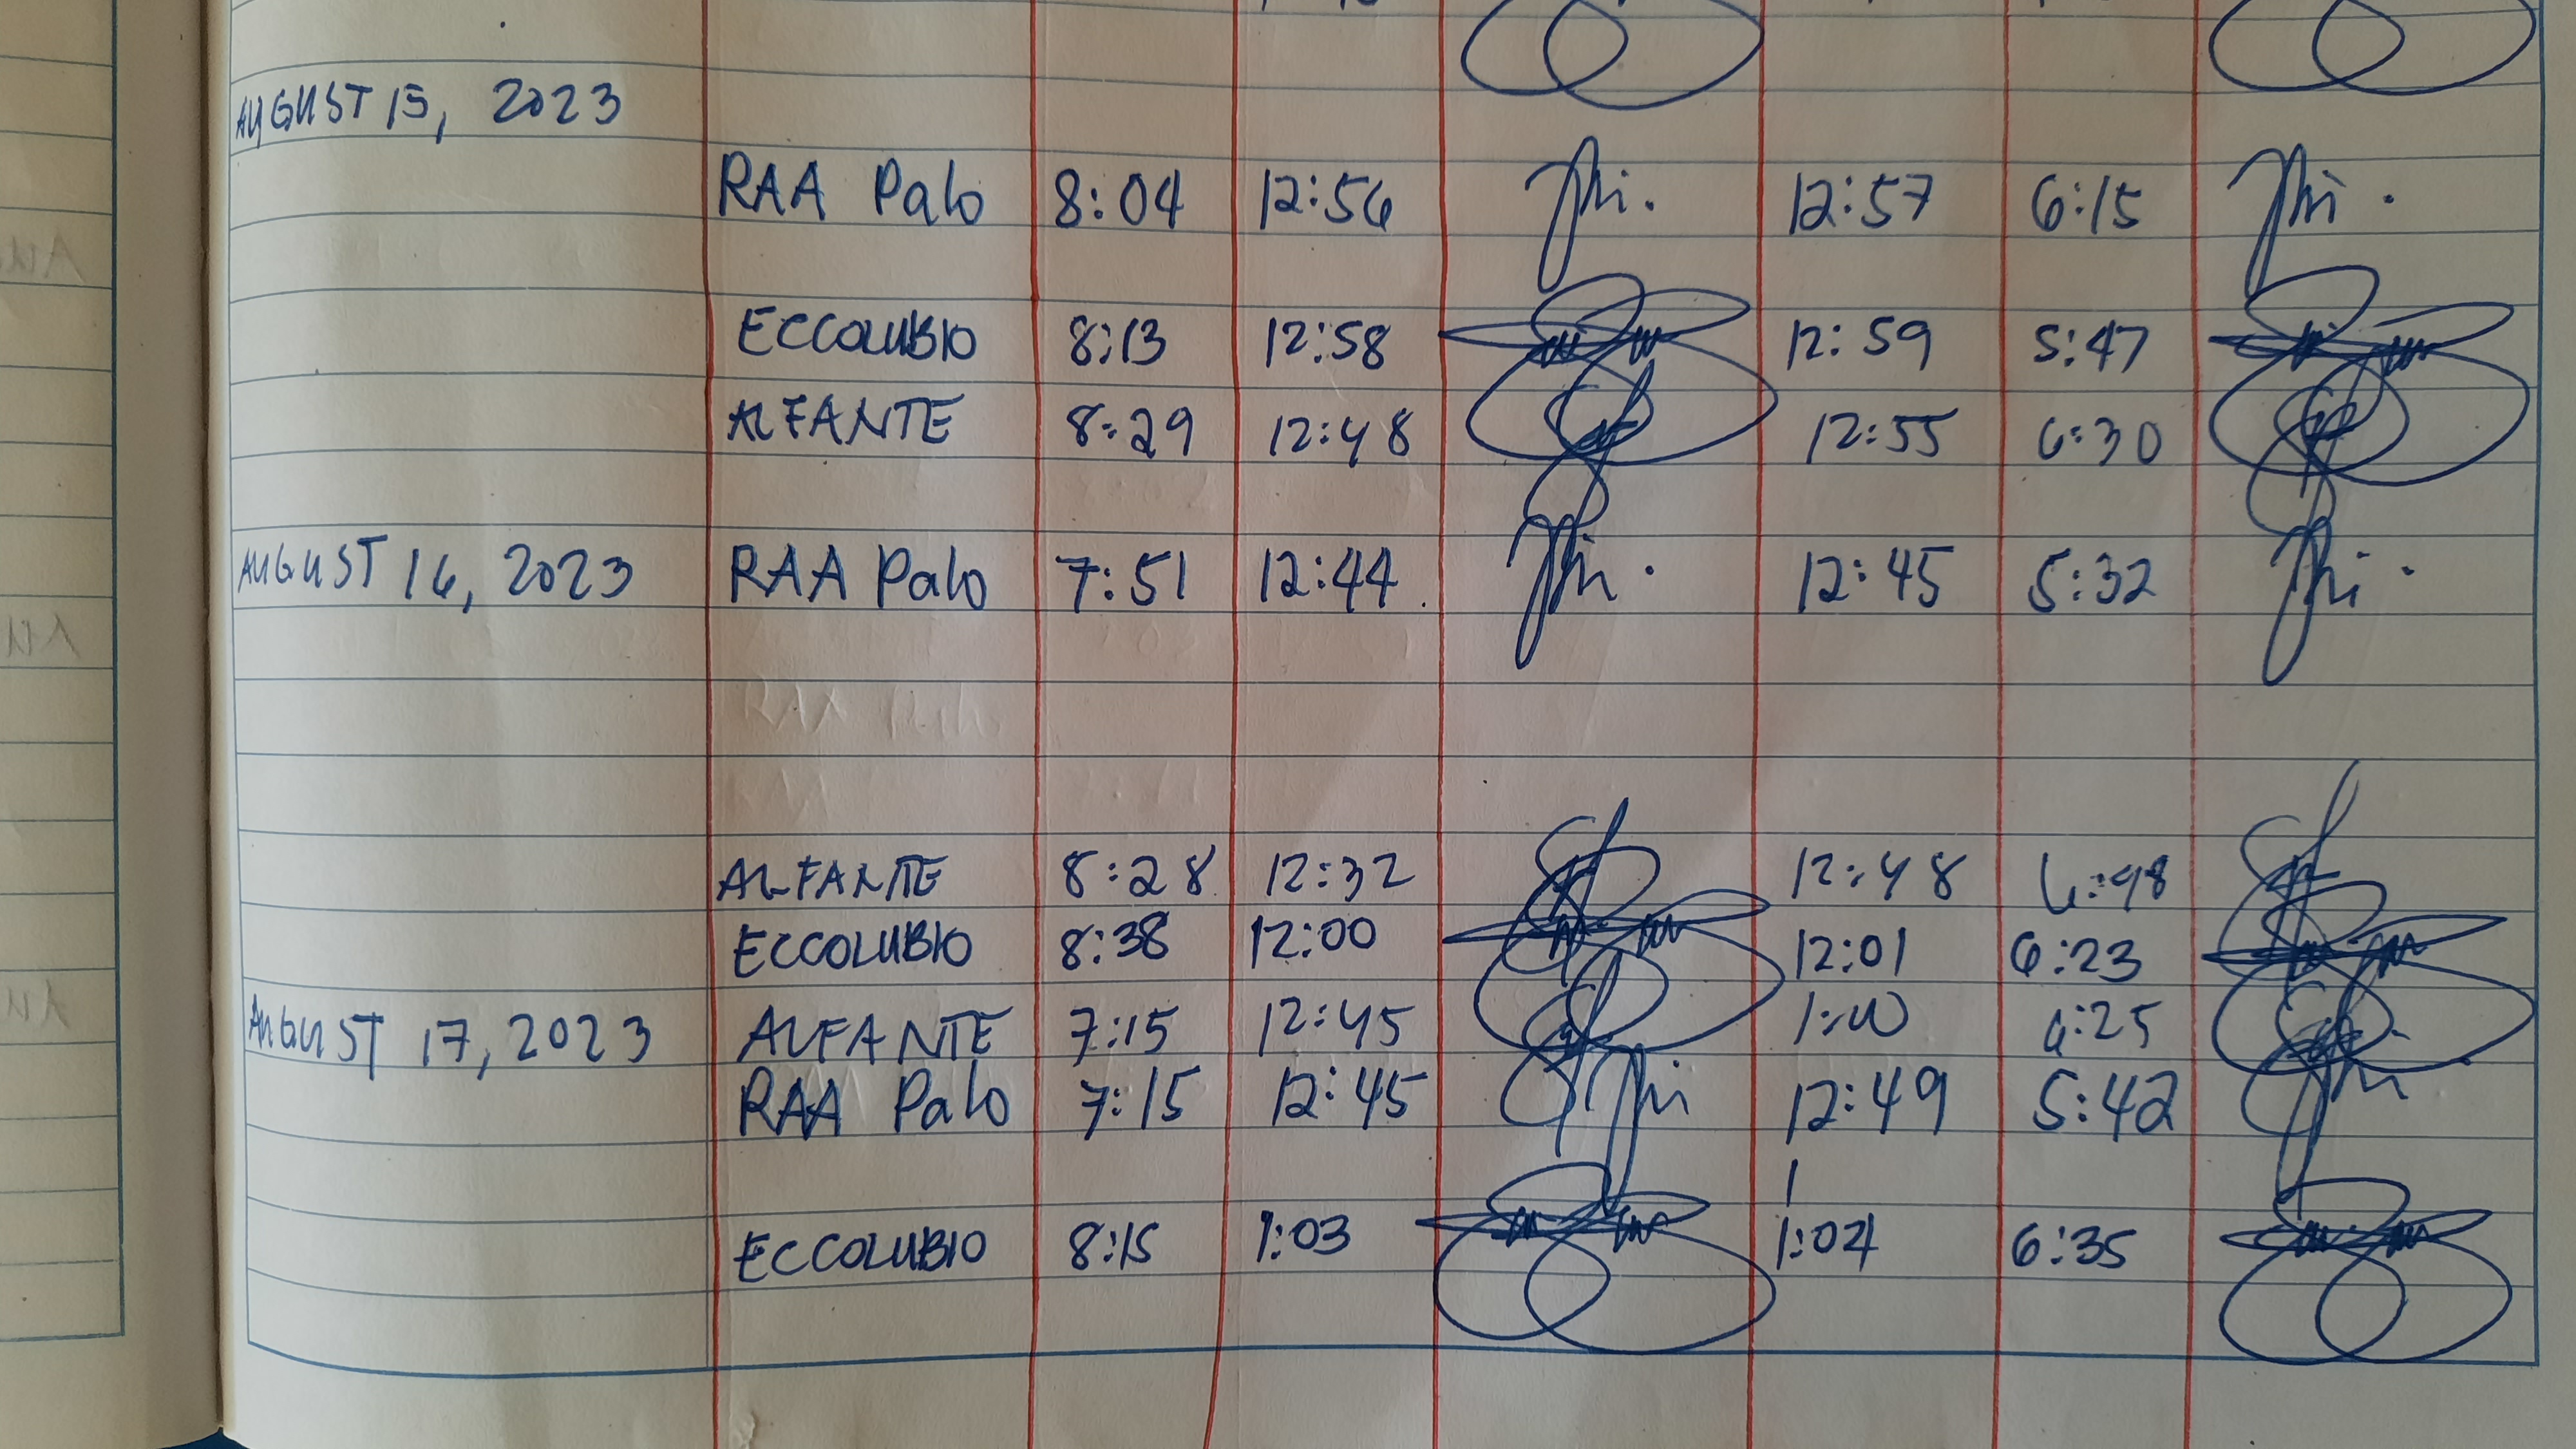 AUGUST 15, 2023
RAA Palo 8:04 12:56 12:57 6:15
ECCOLUBIO 8:13 12:58 12:59 5:47
ALFANTE 8:29 12:48 12:55 6:30
AUGUST 16, 2023 RAA Palo 7:51 12:44 12:45 5:32
ALFANTE 8:28 12:32 12:48 6:48
ECCOLUBIO 8:38 12:00 12:01 6:23
AUGUST 17, 2023 ALFANTE 7:15 12:45 1:00 6:25
RAA Palo 7:15 12:45 12:49 5:42
ECCOLUBIO 8:15 1:03 1:04 6:35